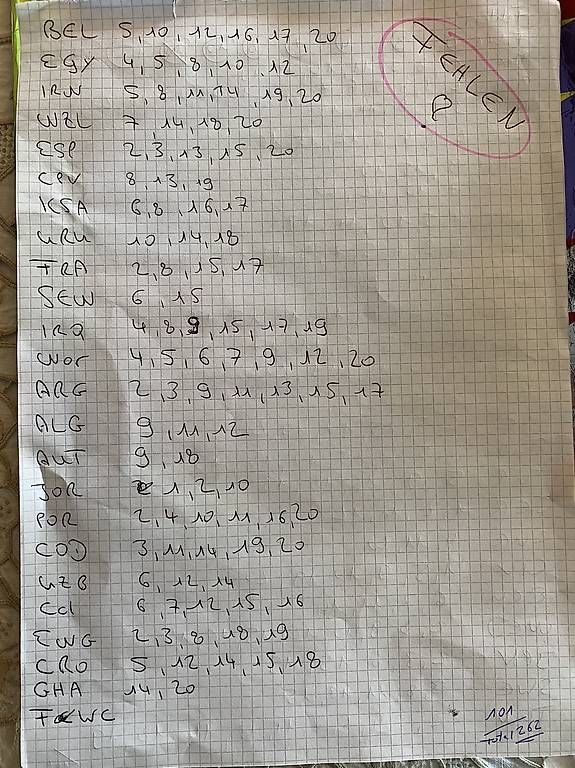 BEL 5, 10, 12, 16, 17, 20
EGY 4, 5, 8, 10, 12
IRN 5, 8, 11, 14, 19, 20
NZL 7, 14, 18, 20
ESP 2, 3, 13, 15, 20
CPV 8, 13, 19
KSA 6, 8, 16, 17
URU 10, 14, 18
FRA 2, 8, 15, 17
SEN 6, 15
IRQ 4, 8, 9, 15, 17, 19
NOR 4, 5, 6, 7, 9, 12, 20
ARG 2, 3, 9, 11, 13, 15, 17
ALG 9, 11, 12
AUT 9, 18
JOR 1, 2, 10
POR 2, 4, 10, 11, 16, 20
COD 3, 11, 14, 19, 20
UZB 6, 12, 14
COL 6, 7, 12, 15, 16
ENG 2, 3, 8, 18, 19
CRO 5, 12, 14, 15, 18
GHA 14, 20
FWC
FEHLEN
101
Total 262